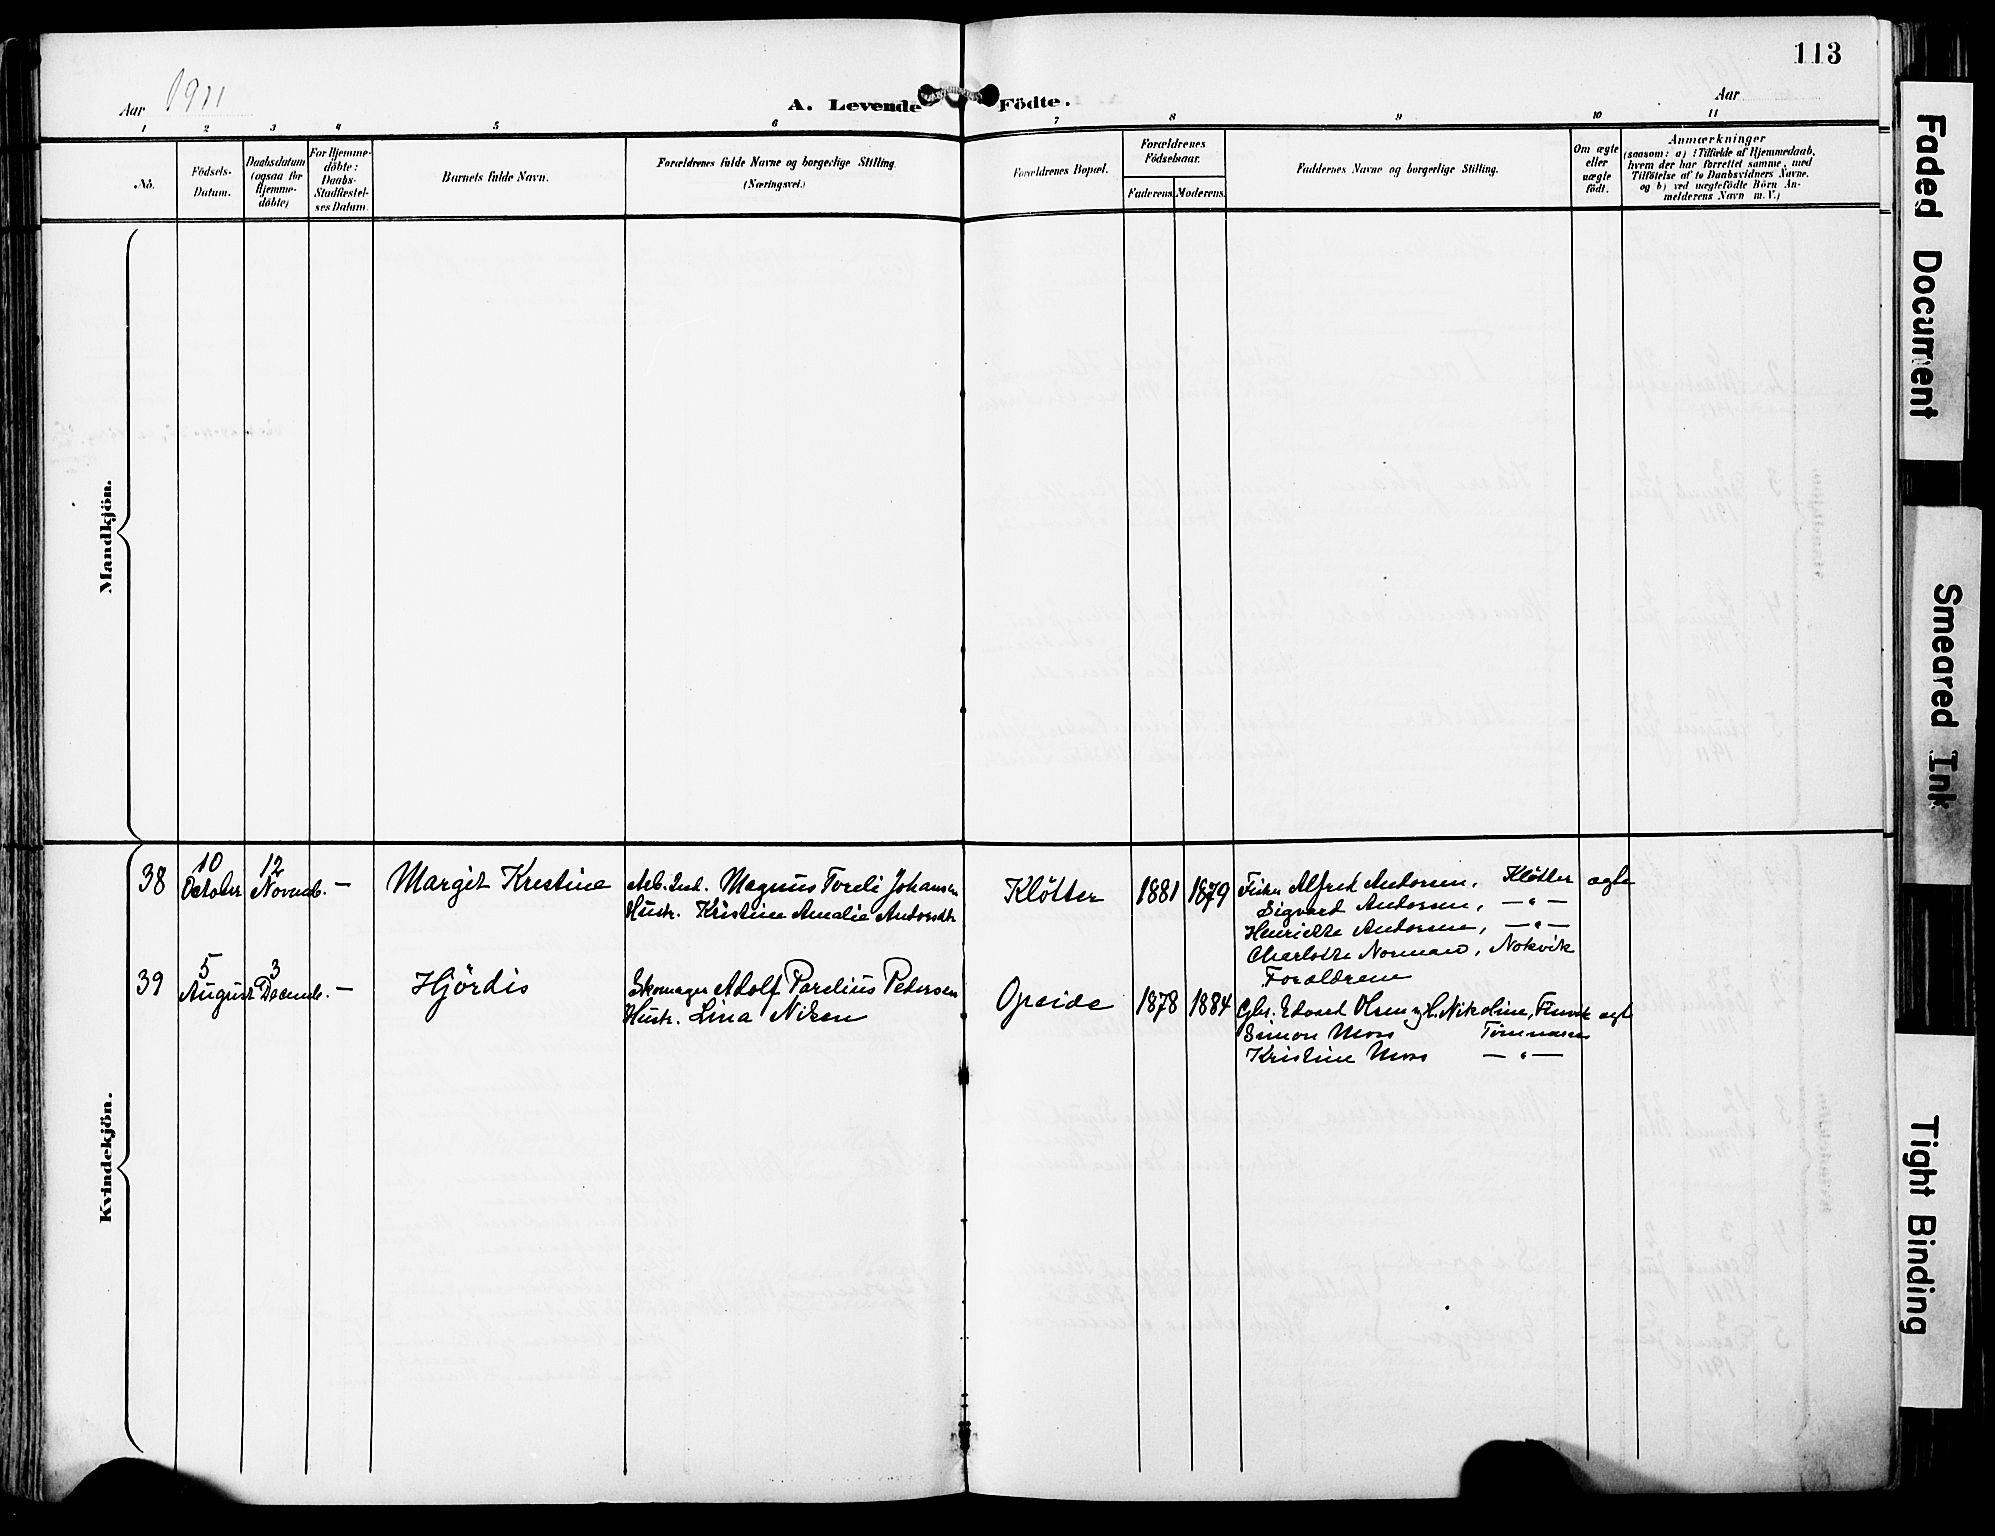 113
Aar 1911
A. Levende Födte.
Aar
1 2 3 4 5 6 7 8 9 10 11
No.
Födsels-
Datum.
Daabsdatum
(ogsaa for
Hjemme-
döbte)
For Hjemme-
döbte:
Daabs-
Stadfæstel-
ses Datum.
Barnets fulde Navn.
Forældrenes fulde Navne og borgerlige Stilling.
(Næringsvei.)
Forældrenes Bopæl.
Forældrenes
Födselsaar.
Faderens. Moderens.
Faddernes Navne og borgerlige Stilling.
Om ægte
eller
uægte
födt.
Anmærkninger
(saasom: a) i Tilfælde af Hjemmedaab,
hvem der har forrettet samme, med
Tilföielse af to Daabsvidners Navne,
og b) ved uægtefödte Börn An-
melderens Navn m. V.)
Mandkjön.
Kvindekjön.
38
10
October
12
Novemb. —
Margit Kristine
Arb. Ind. Magnus Toreli Johansen
Hustr. Kristine Amalie Andersdtr
Kløtter
1881 1879
Fisker Alfred Andersen, Kløtter
Sigvard Andersen, — " —
Henriette Andersen, — " —
Charlotte Norman, Nokvik
Forældrene
ægte
39
5
August
3
Decemb. —
Hjördis
Skomager Adolf Parelius Pedersen
Hustr. Lina Nilsen
Opeide
1878 1884
Gbr. Edvard Olsen og H. Nikoline, Finvik
Simon Moss Tømmernes
Kristine Moss — " —
ægt
Faded Document
Smeared Ink
Tight Binding